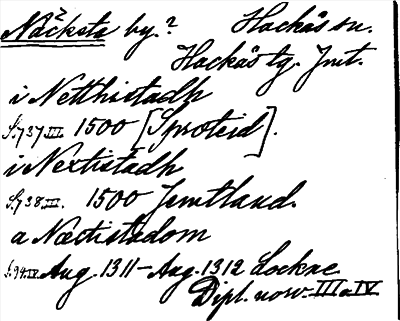 Näcksta by.? Hackås sn.
Hackås tg. Jmt.
i Netthistadh
S. 737 III 1500 [Sproteid].
i Nextistadh
S. 738 III. 1500 Jemtland.
a Nætistadom
S. 94 IV Aug. 1311–Aug. 1312 Lockne
Dipl. norv. III o. IV